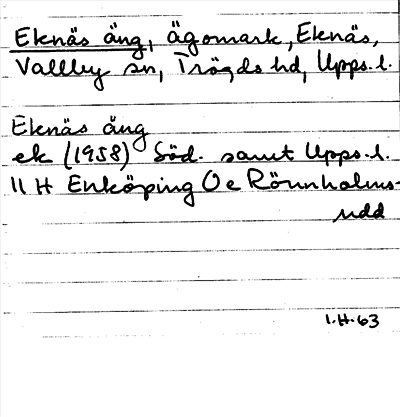 Eknäs äng, ägomark, Eknäs,
Vallby sn, Trögds hd, Upps. l.
Eknäs äng
ek (1958) Söd. samt Upps. l.
11 H Enköping O e Rönnholms-
udd
1.H.63